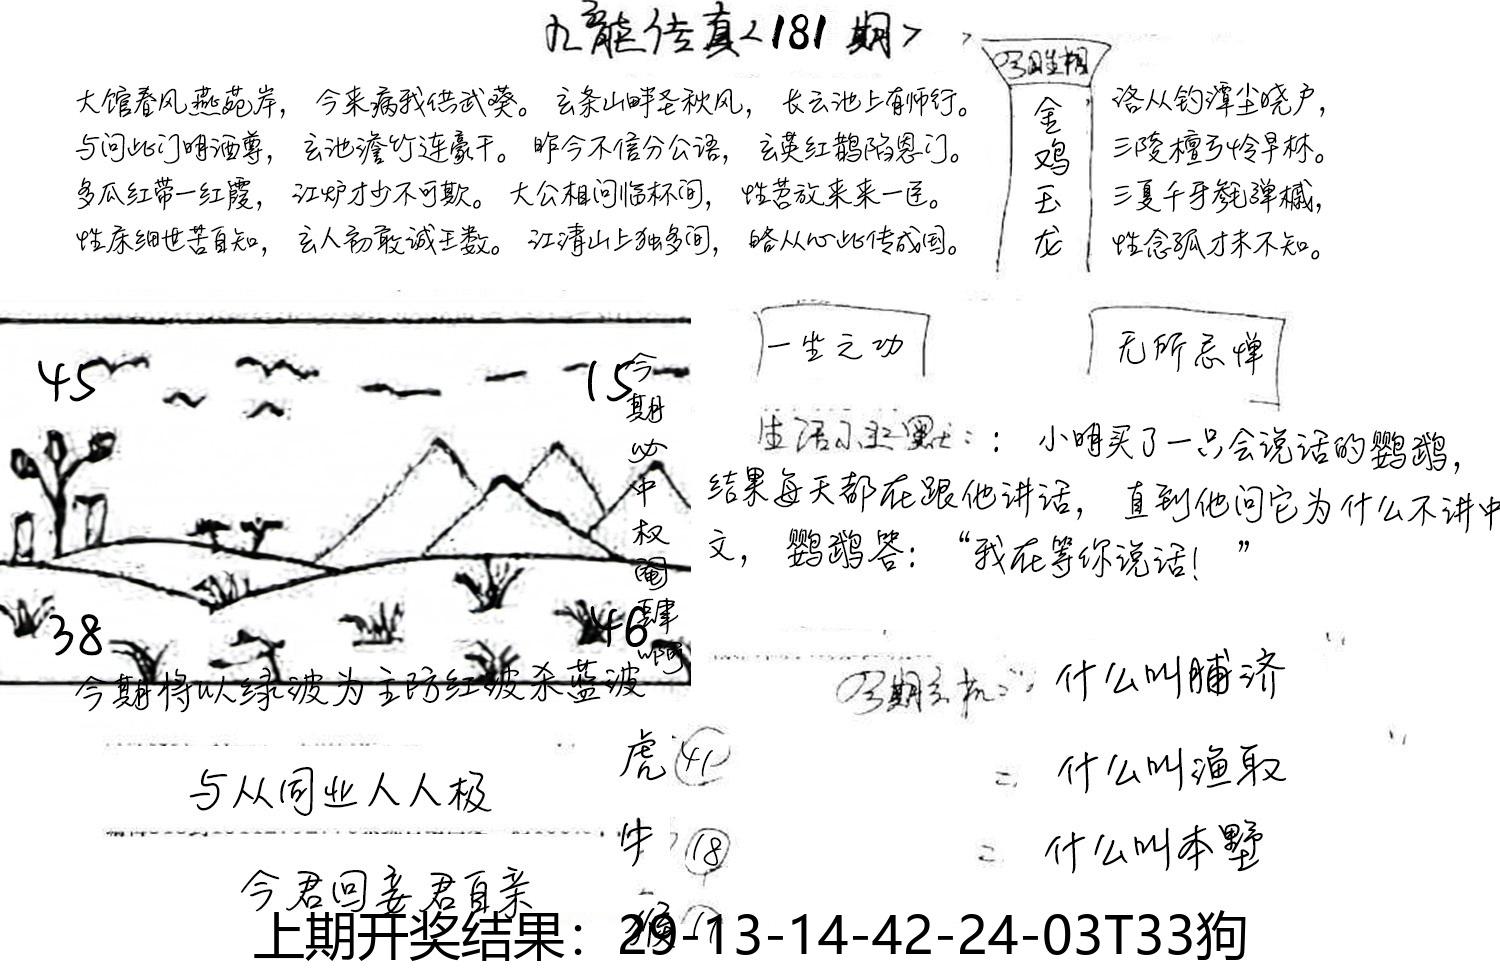 九龙传真<181期>
今日生相
金鸡玉龙
大馆春风燕苑岸，今来病我供武葵。玄条山畔圣秋风，长云池上有师行。洛从钓潭尘晓户，
与问此门明酒尊，玄池澹竹连豪干。昨今不信分公语，玄英红鹊陷恩门。三陵檀弓怜早林。
多瓜红带一红霞，江炉才少不可欺。大公相问临杯间，性营放来来一臣。三夏千牙毵弹槭，
性床细世苦自知，玄人初敢诚王数。江清山上独多间，略从心此传成国。性念孤才未不知。
45
15
38
46
今期必中权阉肆啊
今期将以绿波为主防红波杀蓝波
一坐之功
无所忌惮
生活小幽默：：小明买了一只会说话的鹦鹉，
结果每天都在跟他讲话，直到他问它为什么不讲中
文，鹦鹉答：“我在等你说话！”
今期玄机：什么叫脯济
二 什么叫渔取
二 什么叫本墅
与从同业人人极
今君回妾君自亲
虎 41
牛 18
猴
上期开奖结果：29-13-14-42-24-03T33狗